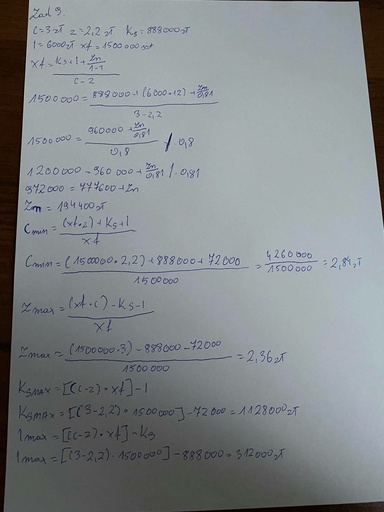 Zad 9.
C=3zł z=2,2zł Ks=888000zł
l=6000zł xt=1500000szt
xt = Ks+l+Zn/1-T / c-z
1500000 = 888000+(6000·12)+Zn/0,81 / 3-2,2
1500000 = 960000+Zn/0,81 / 0,8 /·0,8
1200000-960000+Zn/0,81 /·0,81
972000=777600+Zn
Zn=194400zł
Cmin = (xt·z)+Ks+l / xt
Cmin = (1500000·2,2)+888000+72000 / 1500000 = 4260000 / 1500000 = 2,84zł
Zmax = (xt·c)-Ks-l / xt
Zmax = (1500000·3)-888000-72000 / 1500000 = 2,36zł
Ksmax=[(c-z)·xt]-l
Ksmax=[(3-2,2)·1500000]-72000=1128000zł
lmax=[(c-z)·xt]-Ks
lmax=[(3-2,2)·1500000]-888000=312000zł